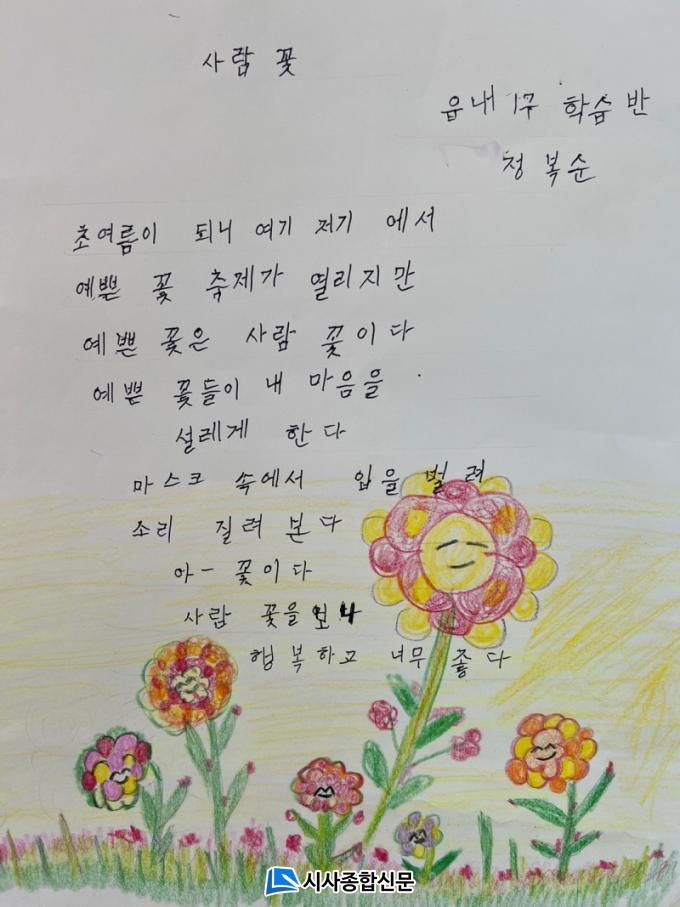 사람 꽃
읍내 1구 학습 반
정 복순
초여름이 되니 여기 저기 에서
예쁜 꽃 축제가 열리지만
예쁜 꽃은 사람 꽃이다
예쁜 꽃들이 내 마음을
설레게 한다
마스크 속에서 입을 벌려
소리 질려 본다
아- 꽃이다
사람 꽃을 보니
행복하고 너무 좋다
시사종합신문